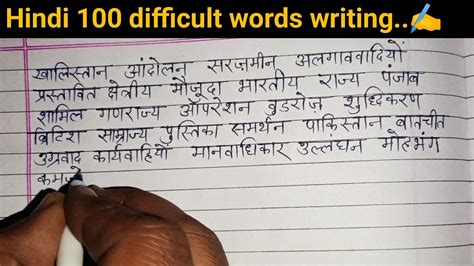 Hindi 100 difficult words writing..✍️
खालिस्तान आंदोलन सरज़मीन अलगाववादियों
प्रस्तावित क्षेत्रीय मौजूदा भारतीय राज्य पंजाब
शामिल गणराज्य ऑपरेशन वुडरोज़ शुद्धिकरण
ब्रिटिश साम्राज्य पुस्तिका समर्थन पाकिस्तान बातचीत
उग्रवाद कार्यवाहियों मानवाधिकार उल्लंघन मोहभंग
कमज़ो